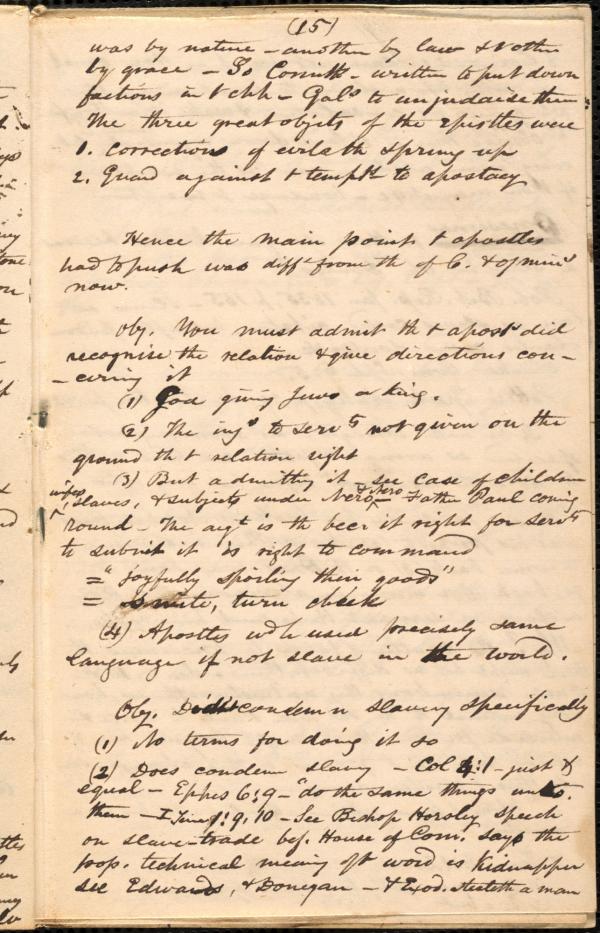 (15)
was by nature – another by law & other
by grace – So Corinth – written to put down
factions in t chh – Gals to unjudaise them
The three great objets of the epistles were
1. Corrections of evils th spring up
2. Guard against t temptn to apostacy
Hence the main points t apostles
had to push was difft from th of C. & of minrs
now.
Obj. You must admit th t aposts did
recognise the relation & give directions con–
–cerning it
(1) God giving Jews a king.
(2) The injs to servts not given on the
ground th t relation right
(3) But admitting it see case of children
wives, slaves, & subjects under Nero – & Nero Father Paul coming
round – The argt is th bec it right for servts
to submit it is right to command
= "joyfully spoiling their goods"
= smite, turn cheek
(4) Apostles wdh used precisely same
language if not slave in the world.
Obj. Didnt condemn slavery specifically
(1) No terms for doing it so
(2) Does condemn slavery – Col 4:1 – just &
equal – Ephes 6:9 – "do the same things unto
them – I Tim 1:9,10 – See Bishop Horsley speech
on slave-trade bef. House of Com. says the
prop. technical meaning oft word is Kidnapper
see Edwards, & Donegan – & Exod. stealeth a man